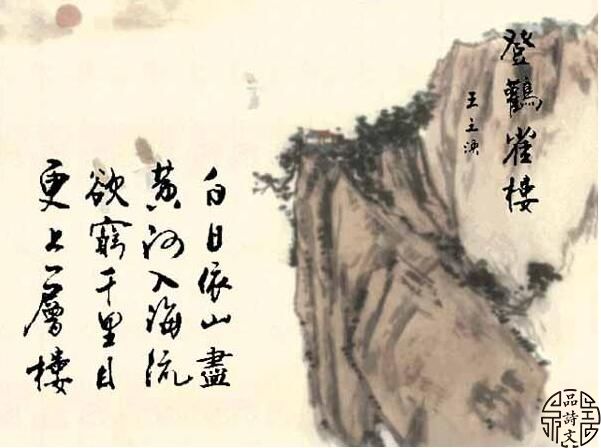 登鸛雀樓
王之渙
白日依山盡
黃河入海流
欲窮千里目
更上一層樓
品詩文